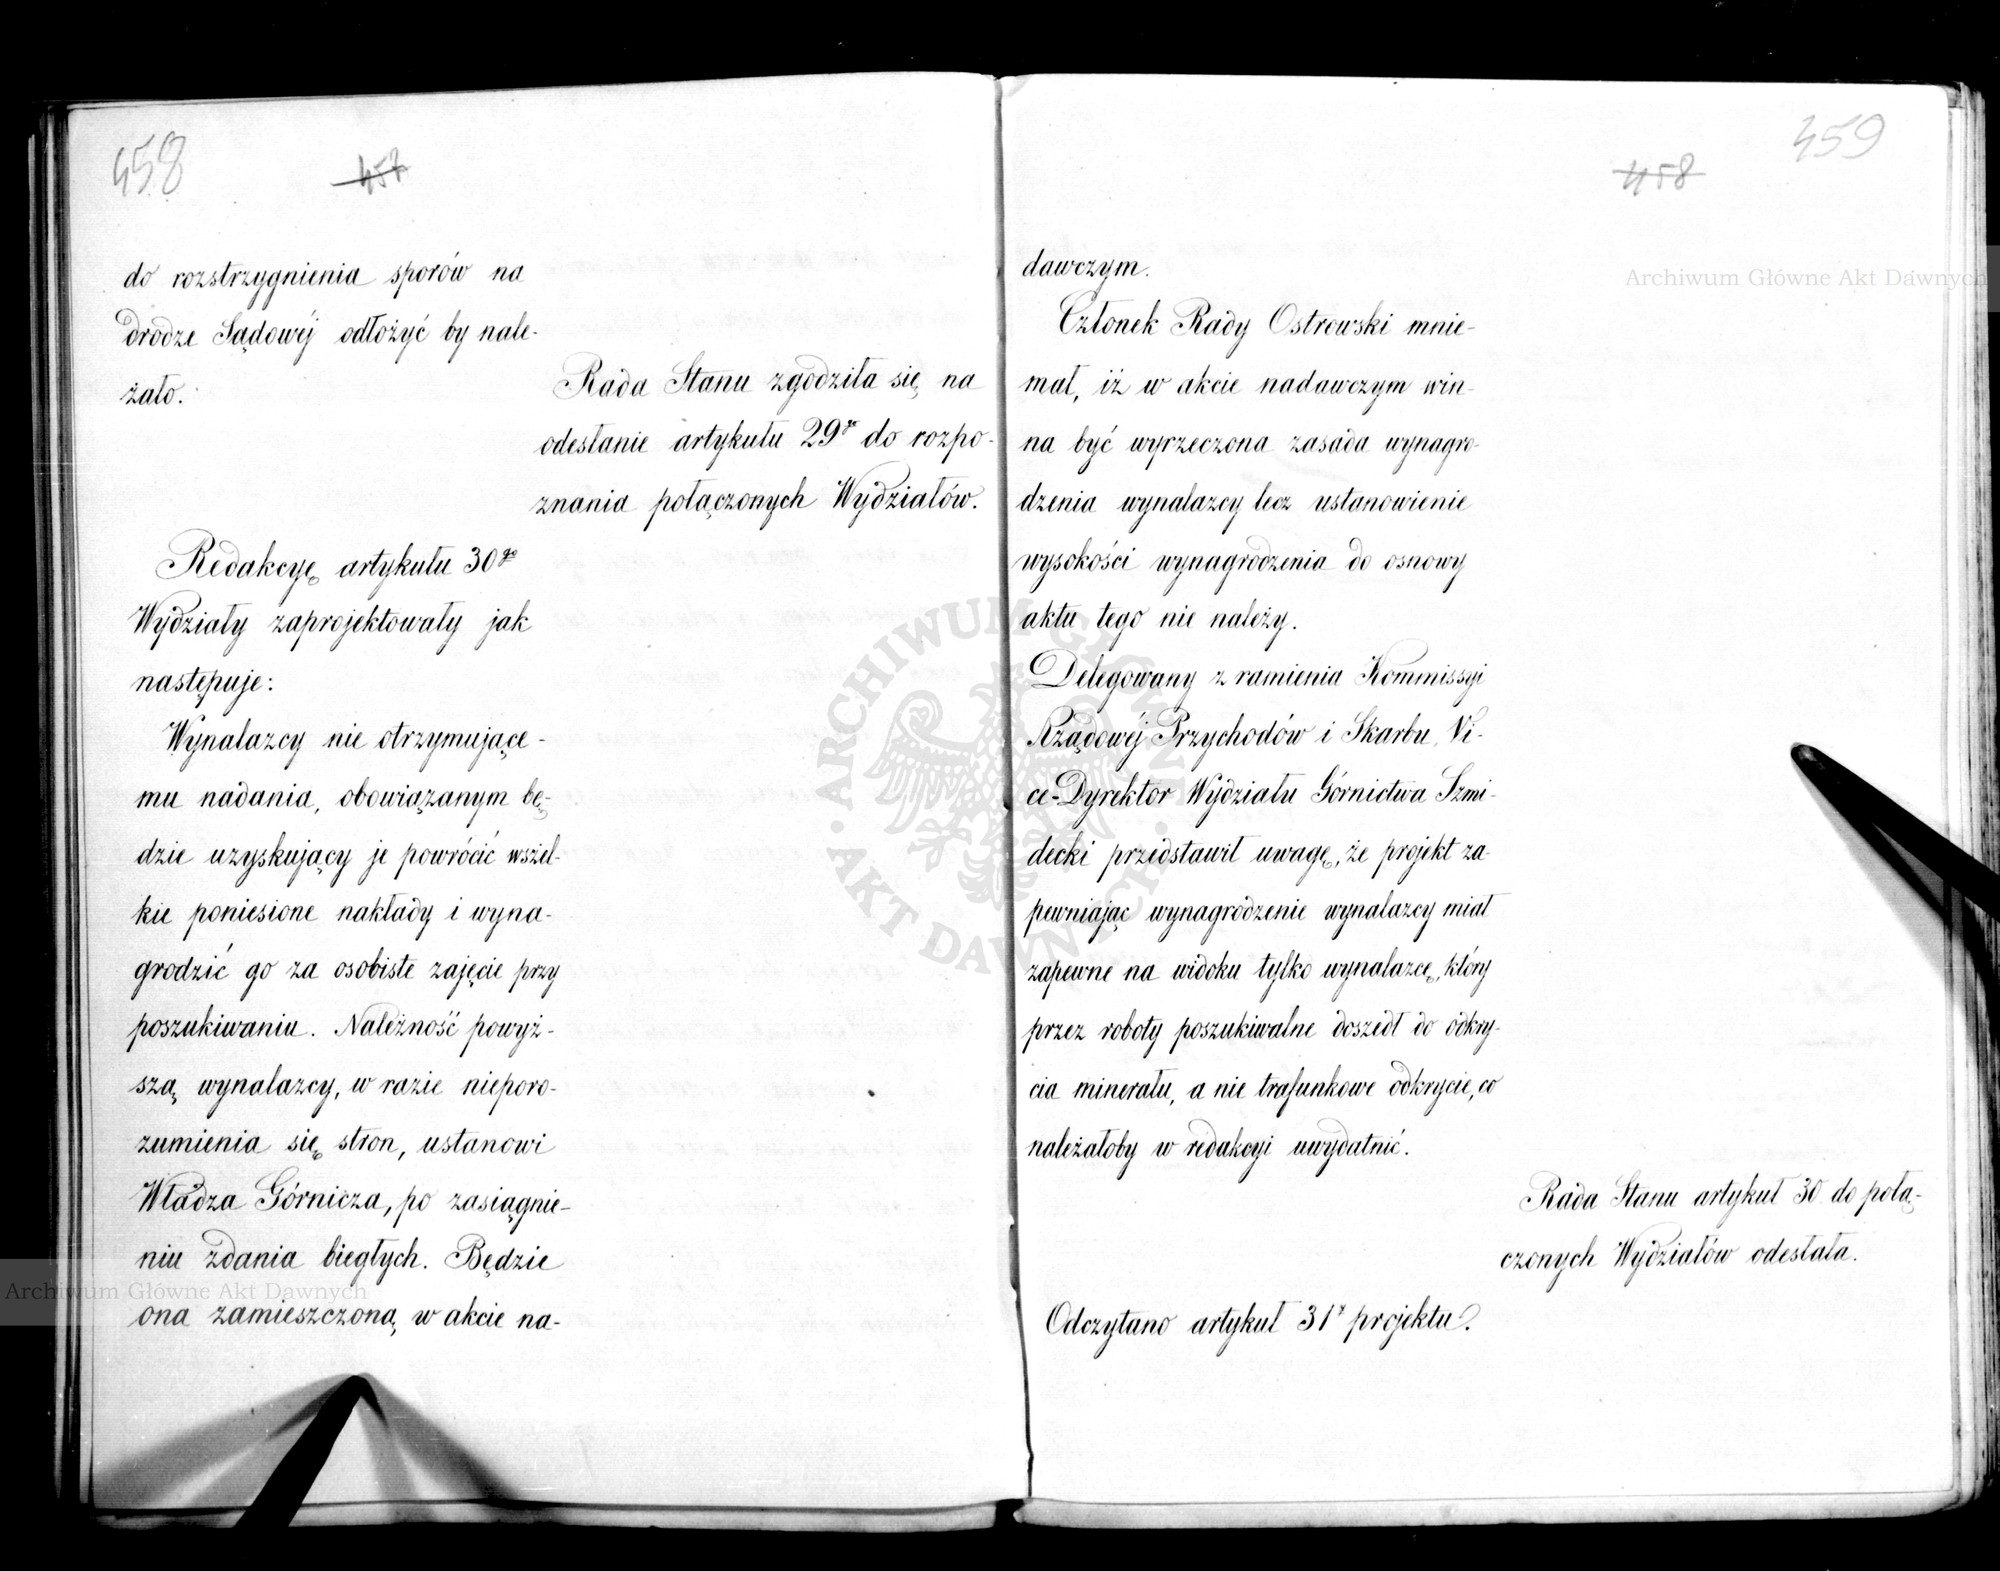 458
457
do rozstrzygnienia sporów na
drodze Sądowéj odłożyć by nale-
żało.
Rada Stanu zgodziła się na
odesłanie artykułu 29go do rozpo-
znania połączonych Wydziałów.
Redakcyę artykułu 30go
Wydziały zaprojektowały jak
następuje:
Wynalazcy nie otrzymujące-
mu nadania, obowiązanym bę-
dzie uzyskujący je powrócić wszel-
kie poniesione nakłady i wyna-
grodzić go za osobiste zajęcie przy
poszukiwaniu. Należność powyż-
szą wynalazcy, w razie nieporo-
zumienia się stron, ustanowi
Władza Górnicza, po zasiągnie-
niu zdania biegłych. Będzie
ona zamieszczoną w akcie na-
459
458
dawczym.
Członek Rady Ostrowski mnie-
mał, iż w akcie nadawczym win-
na być wyrzeczona zasada wynagro-
dzenia wynalazcy lecz ustanowienie
wysokości wynagrodzenia do osnowy
aktu tego nie należy.
Delegowany z ramienia Kommissyi
Rządowéj Przychodów i Skarbu, Vi-
ce-Dyrektor Wydziału Górnictwa Szmi-
decki przedstawił uwagę, że projekt za-
pewniając wynagrodzenie wynalazcy miał
zapewne na widoku tylko wynalazcę, który
przez roboty poszukiwalne doszedł do odkry-
cia minerału, a nie trafunkowe odkrycie, co
należałoby w redakcyi uwydatnić.
Rada Stanu artykuł 30. do połą-
czonych Wydziałów odesłała.
Odczytano artykuł 31y projektu.
Archiwum Główne Akt Dawnych
Archiwum Główne Akt Dawnych
ARCHIWUM GŁÓWNE
AKT DAWNYCH